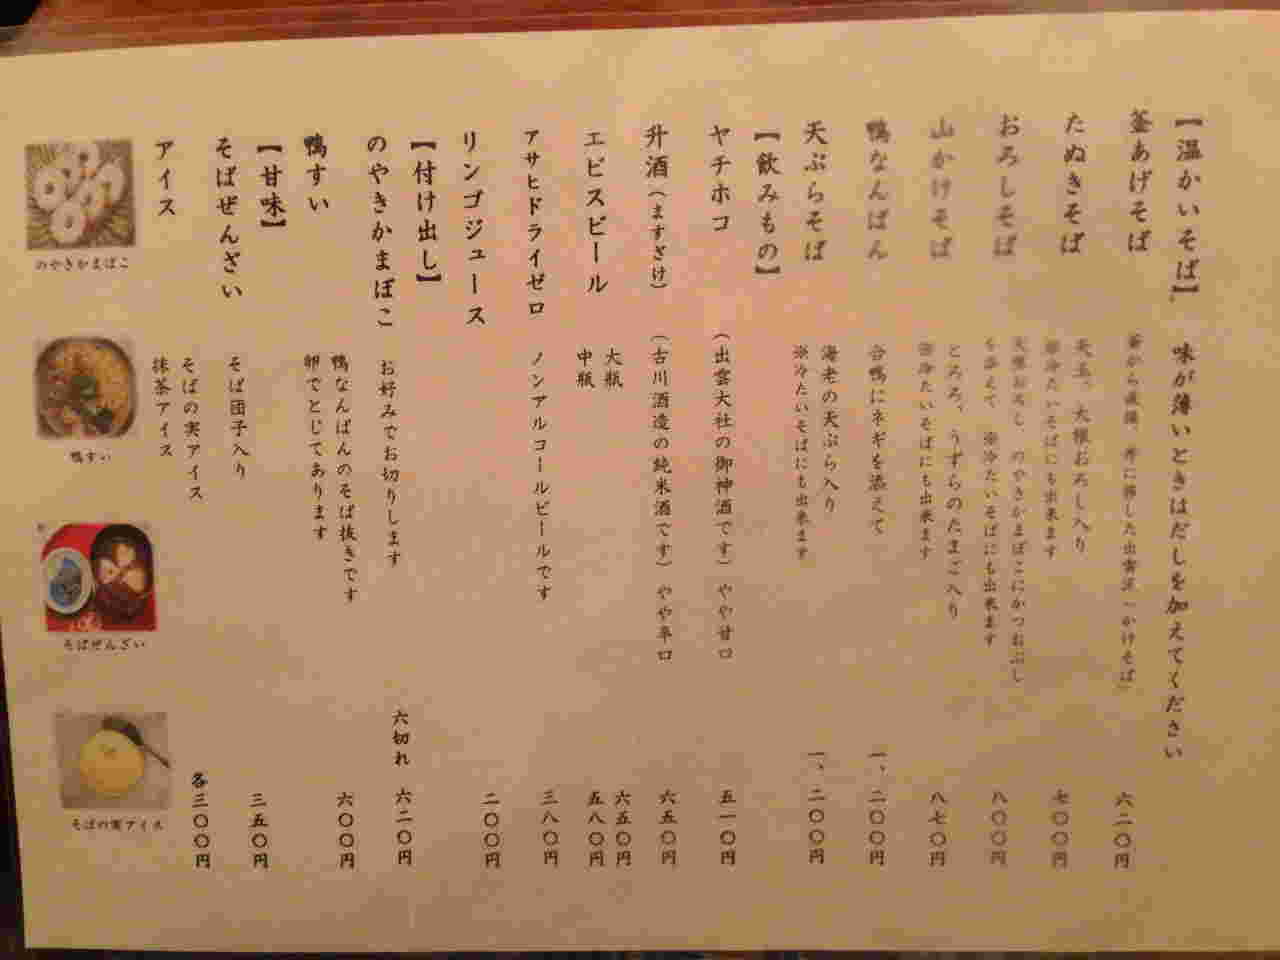 【温かいそば】 味が薄いときはだしを加えてください
釜あげそば 釜から直接、丼に移した出雲流「かけそば」 六二〇円
たぬきそば 天玉、大根おろし入り 七〇〇円
※冷たいそばにも出来ます
おろしそば 大根おろし、のやきかまぼこにかつおぶし 八〇〇円
を添えて ※冷たいそばにも出来ます
山かけそば とろろ、うずらのたまご入り 八七〇円
※冷たいそばにも出来ます
鴨なんばん 合鴨にネギを添えて 一、二〇〇円
天ぷらそば 海老の天ぷら入り 一、二〇〇円
※冷たいそばにも出来ます
【飲みもの】
ヤチホコ (出雲大社の御神酒です) やや甘口 五一〇円
升酒(ますざけ) (古川酒造の純米酒です) やや辛口 六五〇円
エビスビール 大瓶 六五〇円
中瓶 五八〇円
アサヒドライゼロ ノンアルコールビールです 三八〇円
リンゴジュース 二〇〇円
【付け出し】
のやきかまぼこ お好みでお切りします 六切れ 六二〇円
鴨すい 鴨なんばんのそば抜きです 六〇〇円
卵でとじてあります
【甘味】
そばぜんざい そば団子入り 三五〇円
アイス そばの実アイス 各三〇〇円
抹茶アイス
のやきかまぼこ
鴨すい
そばぜんざい
そばの実アイス